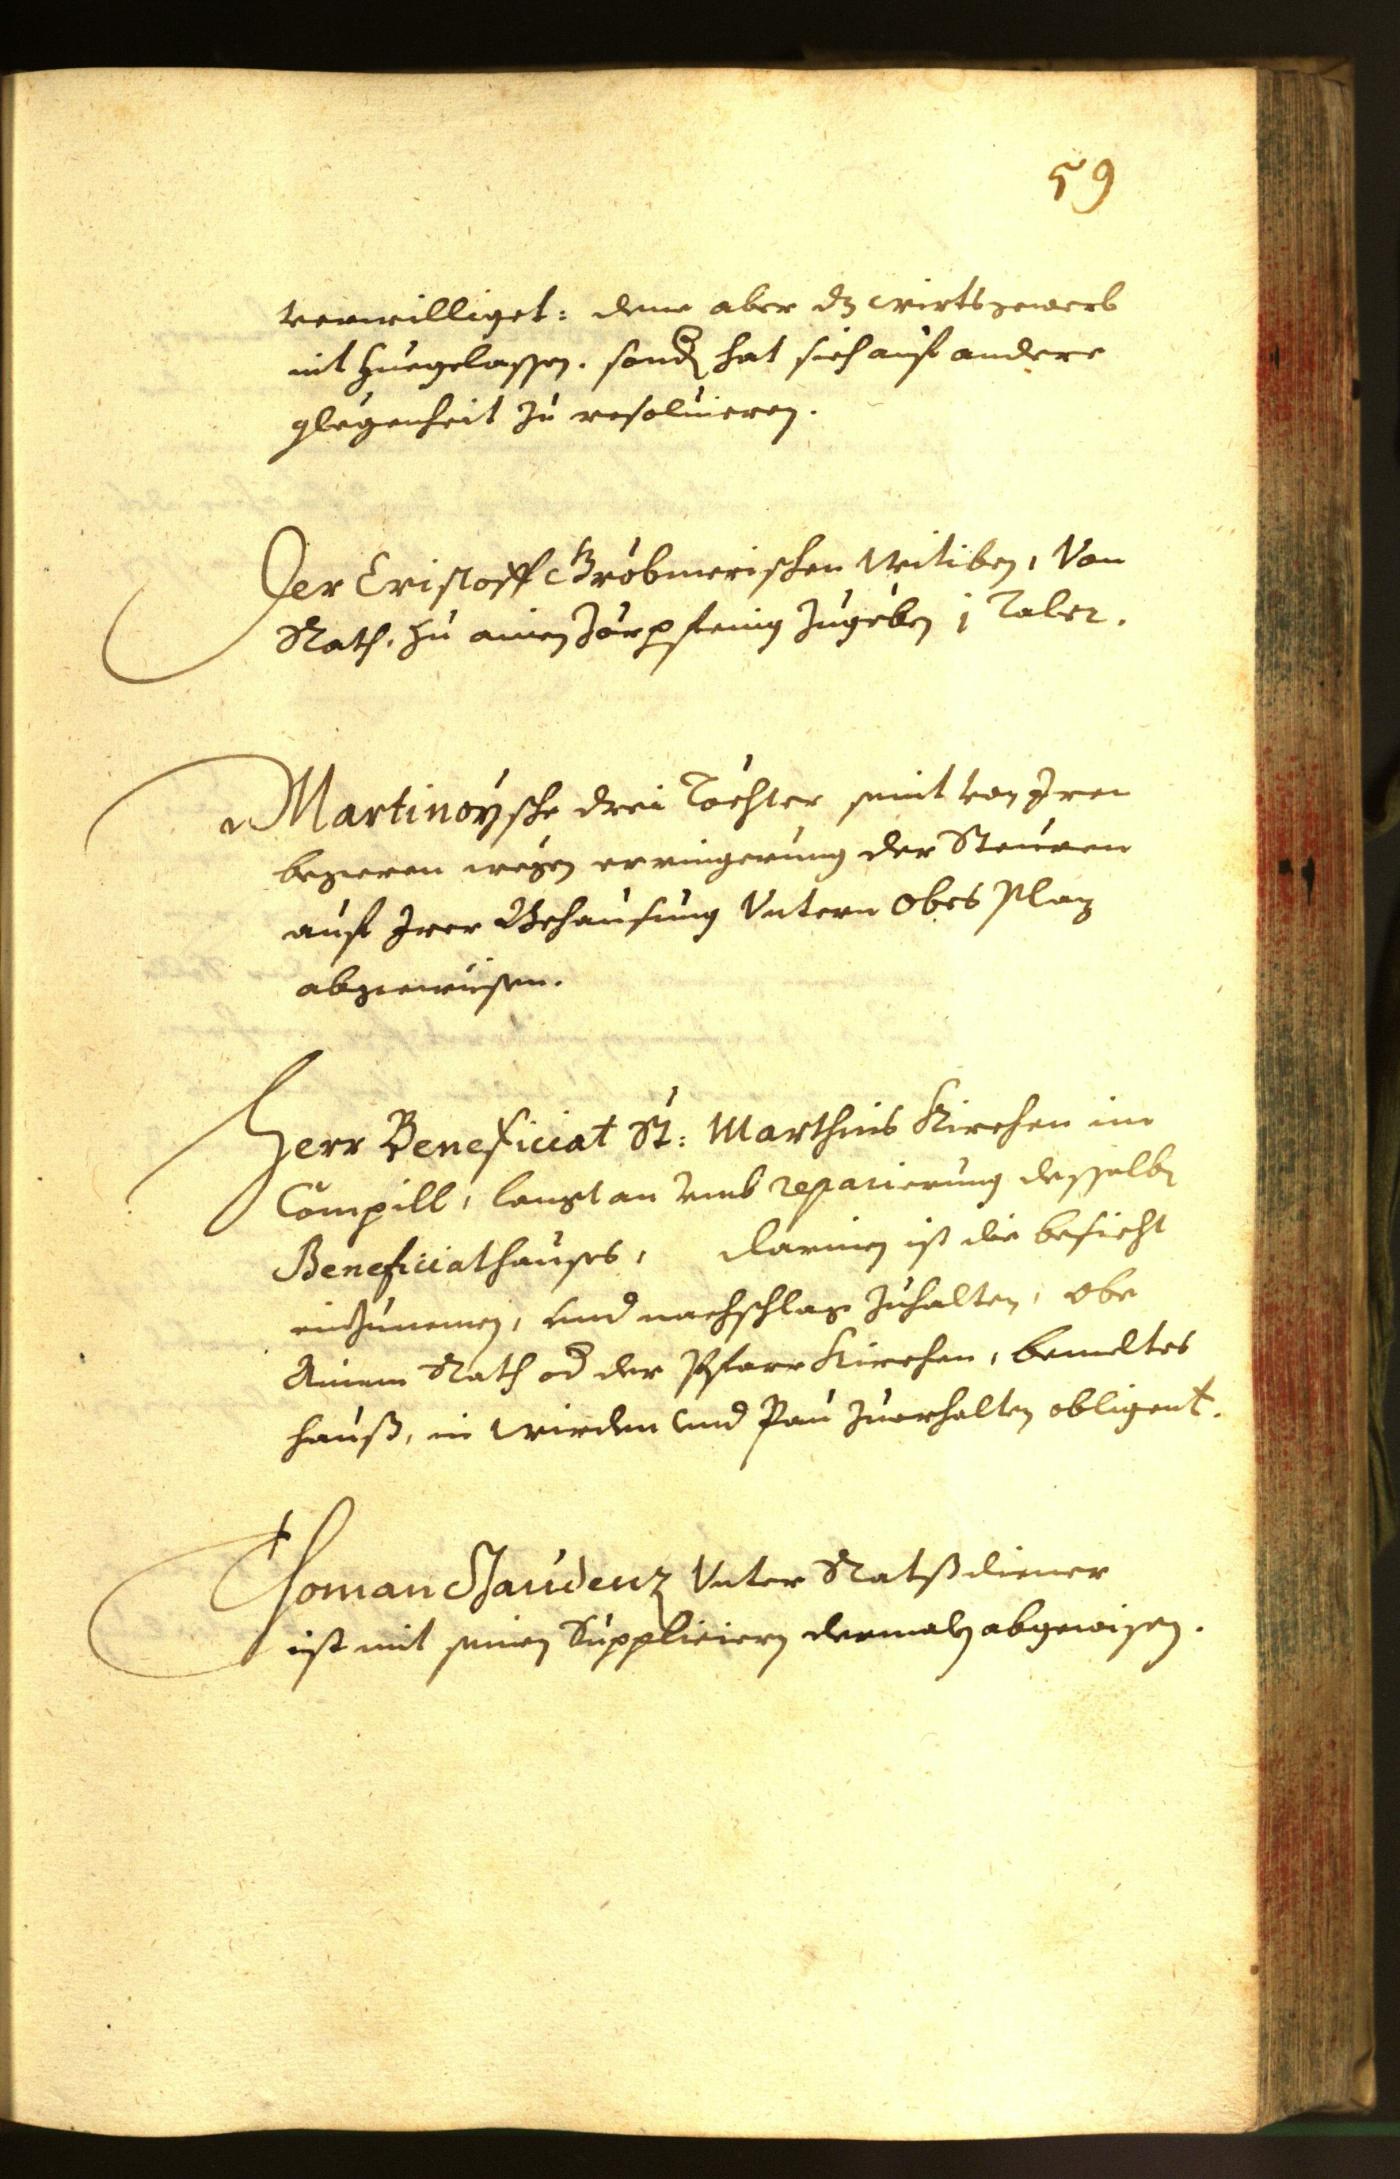 59
verwilliget: deme aber dz wirtsgewerb
nit zuegelassen. sond hat sich auf andere
glegenheit zu resoluieren.
Der Cristoff Gröbmerischen Witiben, Von
Rath, zu ainen Zörpfening zugeben j Taler.
Martinoÿsche drei Töchter seint von Iren
begeren wegen erringerung der Steuren
auf Irer Behausung Vntern Obs Plaz
abgewisen.
Herr Beneficiat St: Marthins Kirchen im
Compill, langt an vmb reparierung desselb
Beneficiathauses, darinen ist die besicht
einzunemen, vnd nachschlag zuhalten, obe
Ainem Rath od der Pfarr Kirchen, bemeltes
hauß, in wirden vnd Pau zuerhalten obligent.
Thoman Gaudenz Vnter Ratßdiener
ist mit seinen Supplicieren dermaln abgewisen.